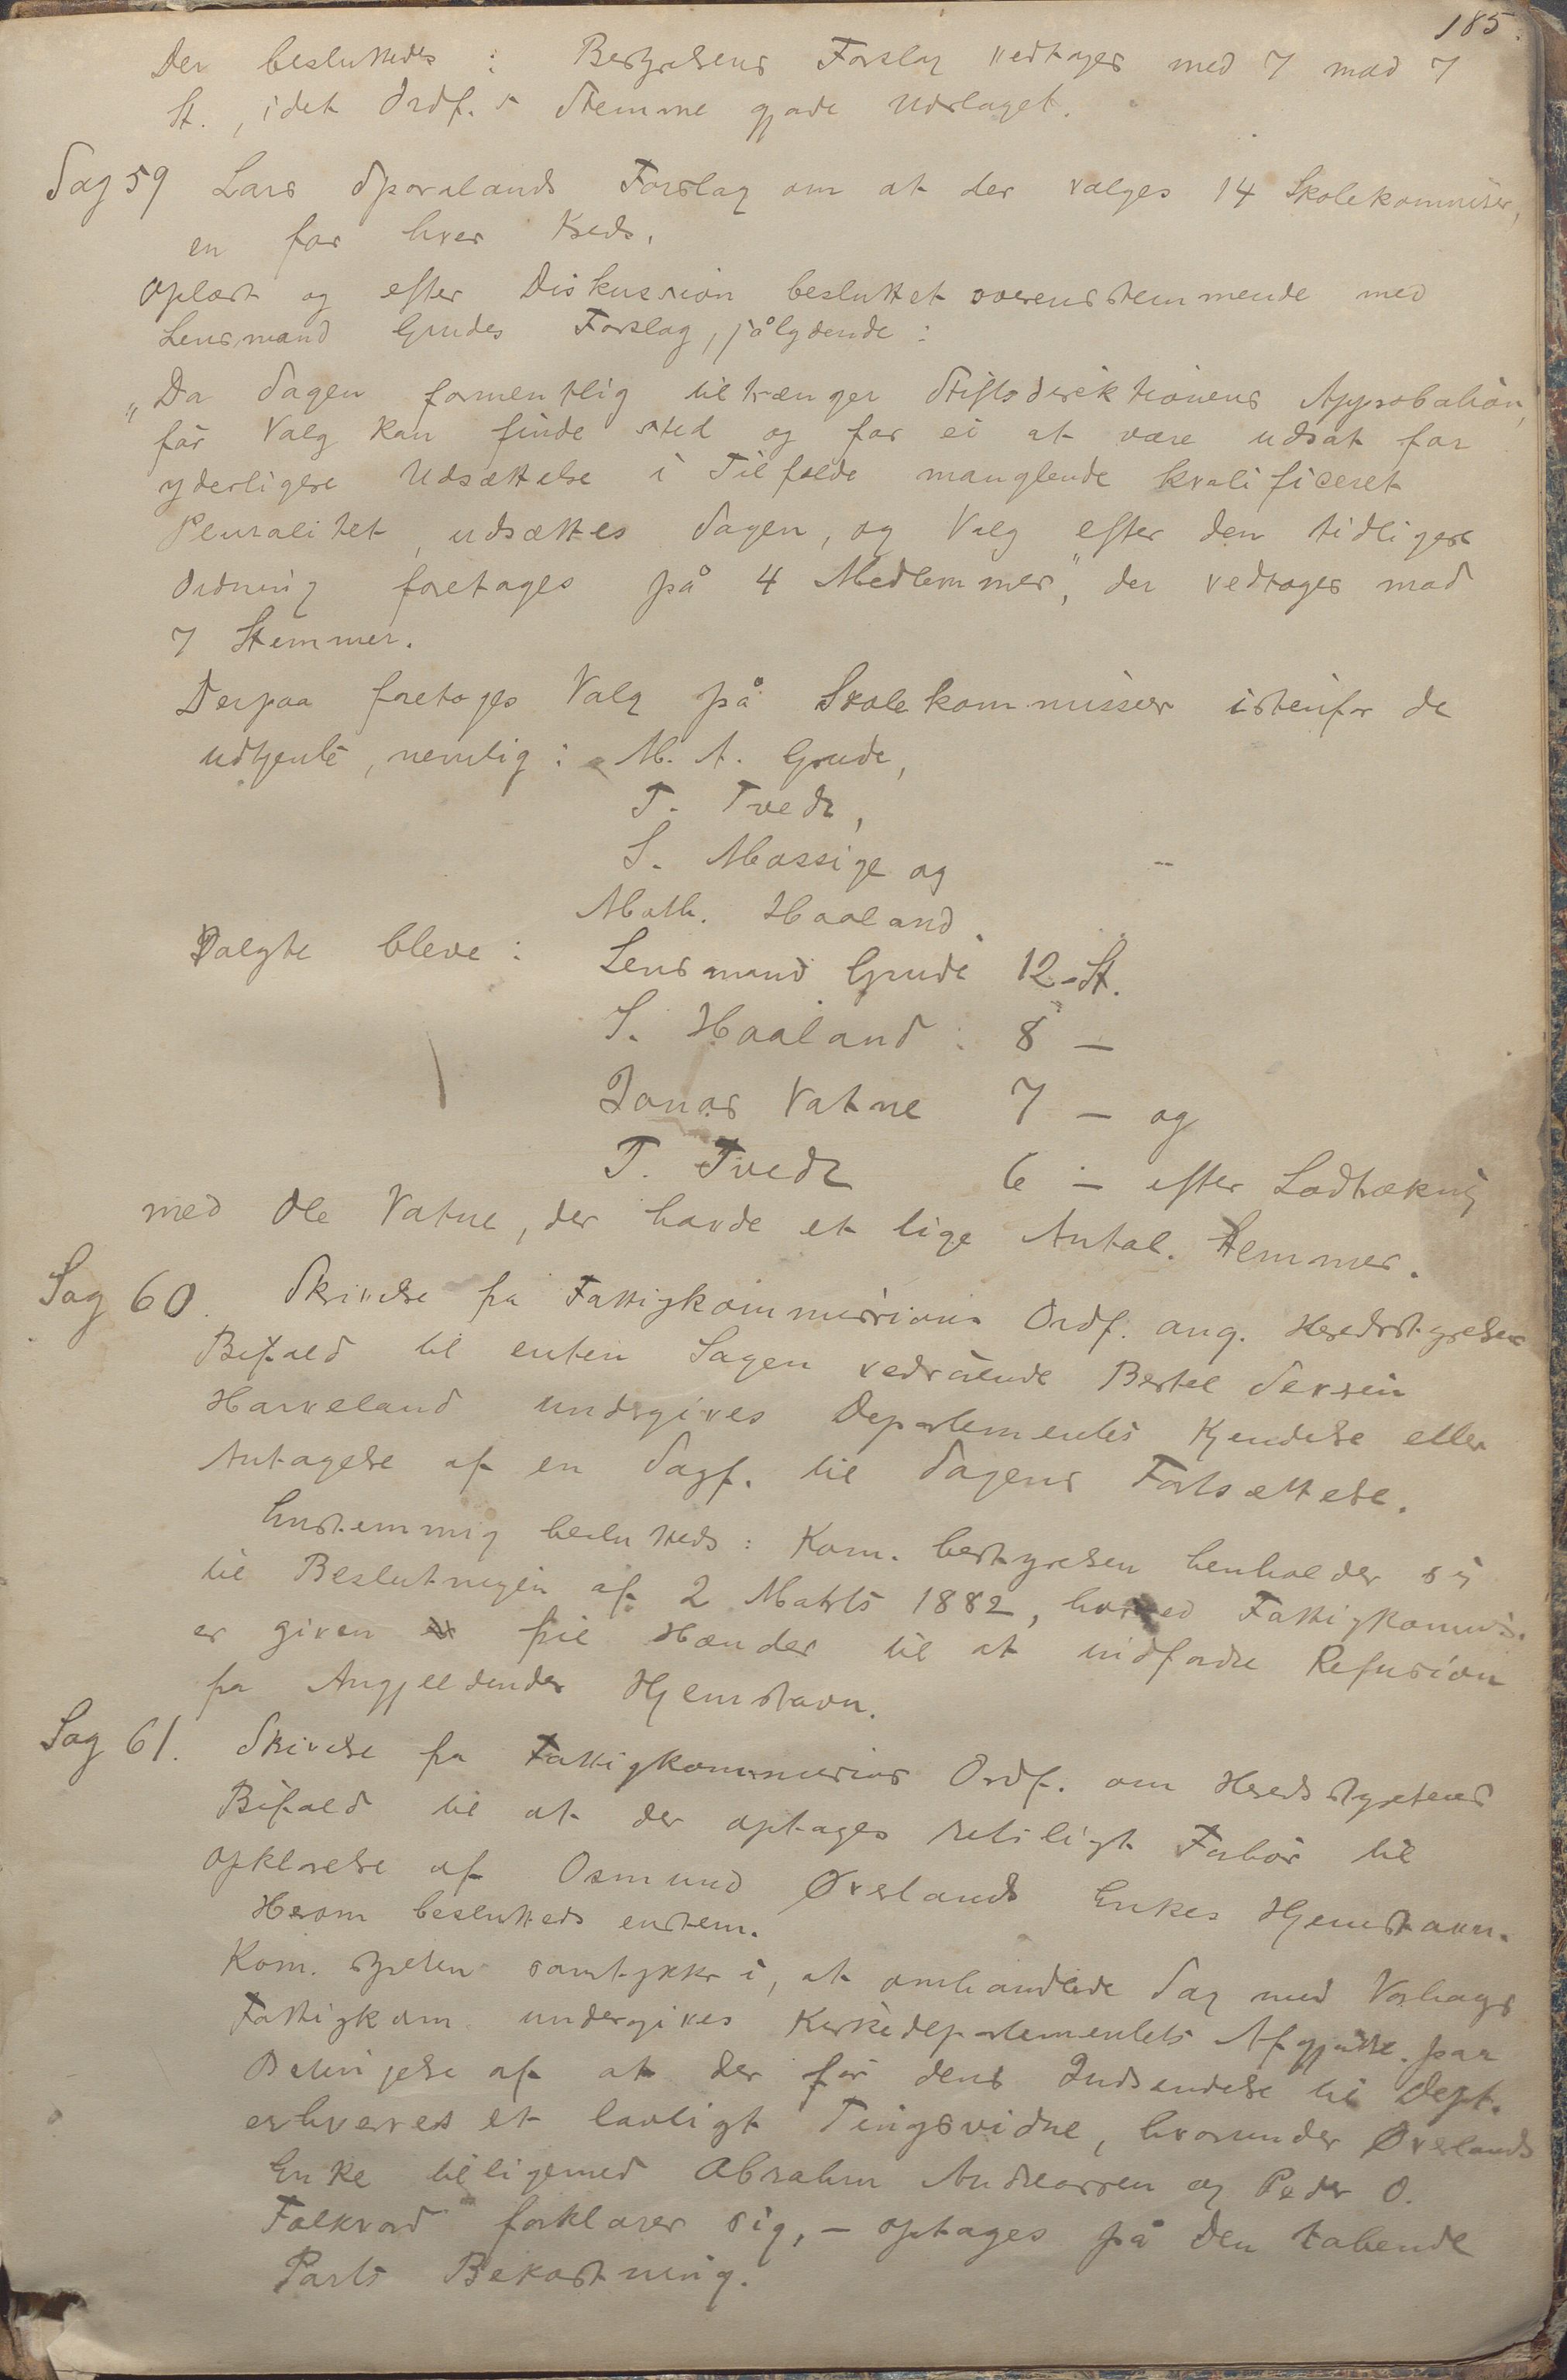 185.
Der besluttedes: Bestyrelsens Forslag vedtages med 7 mod 7
St., idet Ordf.s Stemme gjorde Udslaget.
Sag 59 Lars Sporalands Forslag om at der vælges 14 Skolekommiser,
en for hver Kreds.
Oplæst og efter Diskussion besluttet overensstemmende med
Lensmand Grudes Forslag, sålydende:
„Da Sagen formentlig tiltrænger Stiftsdirektionens Approbation,
før Valg kan finde sted og for ei at være udsat for
yderligere Udsættelse i Tilfælde manglende kvalificeret
Pluralitet, udsættes Sagen, og Valg efter den tidligere
Ordning foretages på 4 Medlemmer", der vedtages mod
7 Stemmer.
Derpaa foretoges Valg på Skolekommisser istenfor de
udtjente, nemlig: M. A. Grude,
T. Tvedt,
S. Mossige og
Math. Haaland.
Valgte bleve: Lensmand Grude 12 St.
S. Haaland: 8 —
Jonas Vatne 7 — og
T. Tvedt 6 — efter Lodtrækning
med Ole Vatne, der havde et lige Antal Stemmer.
Sag 60. Skrivelse fra Fattigkommissions Ordf. ang. Heredsstyrelsens
Bifald til enten Sagen vedrørende Bertel Sevsen
Harveland undergives Departementets Kjendelse eller
Antagelse af en Sagf. til Sagens Fortsættelse.
Enstemmig besluttedes: Kom. bestyrelsen henholder sig
til Beslutningen af 2 Marts 1882, hvorved Fattigkommis.
er given frie Hænder til at indfordre Refusion
fra Angjeldendes Hjemstavn.
Sag 61. Skrivelse fra Fattigkommissions Ordf. om Heredsstyrelsens
Bifald til at der optages retsligt Forhør til
Opklarelse af Osmund Ørelands Enkes Hjemstavn.
Herom besluttedes enstem.
Kom. styrelsen samtykker i, at omhandlede Sag med Vorhaugs
Fattigkom. undergives Kirkedepartementets Afgjørelse paa
Betingelse af at der før dens Indsendelse til Dept.
erhverves et lovligt Tingsvidne, hvorunder Ørelands
Enke tilligemed Abraham Andreassen og Peder O.
Folkvord forklarer sig, — optages på den tabende
Parts Bekostning.